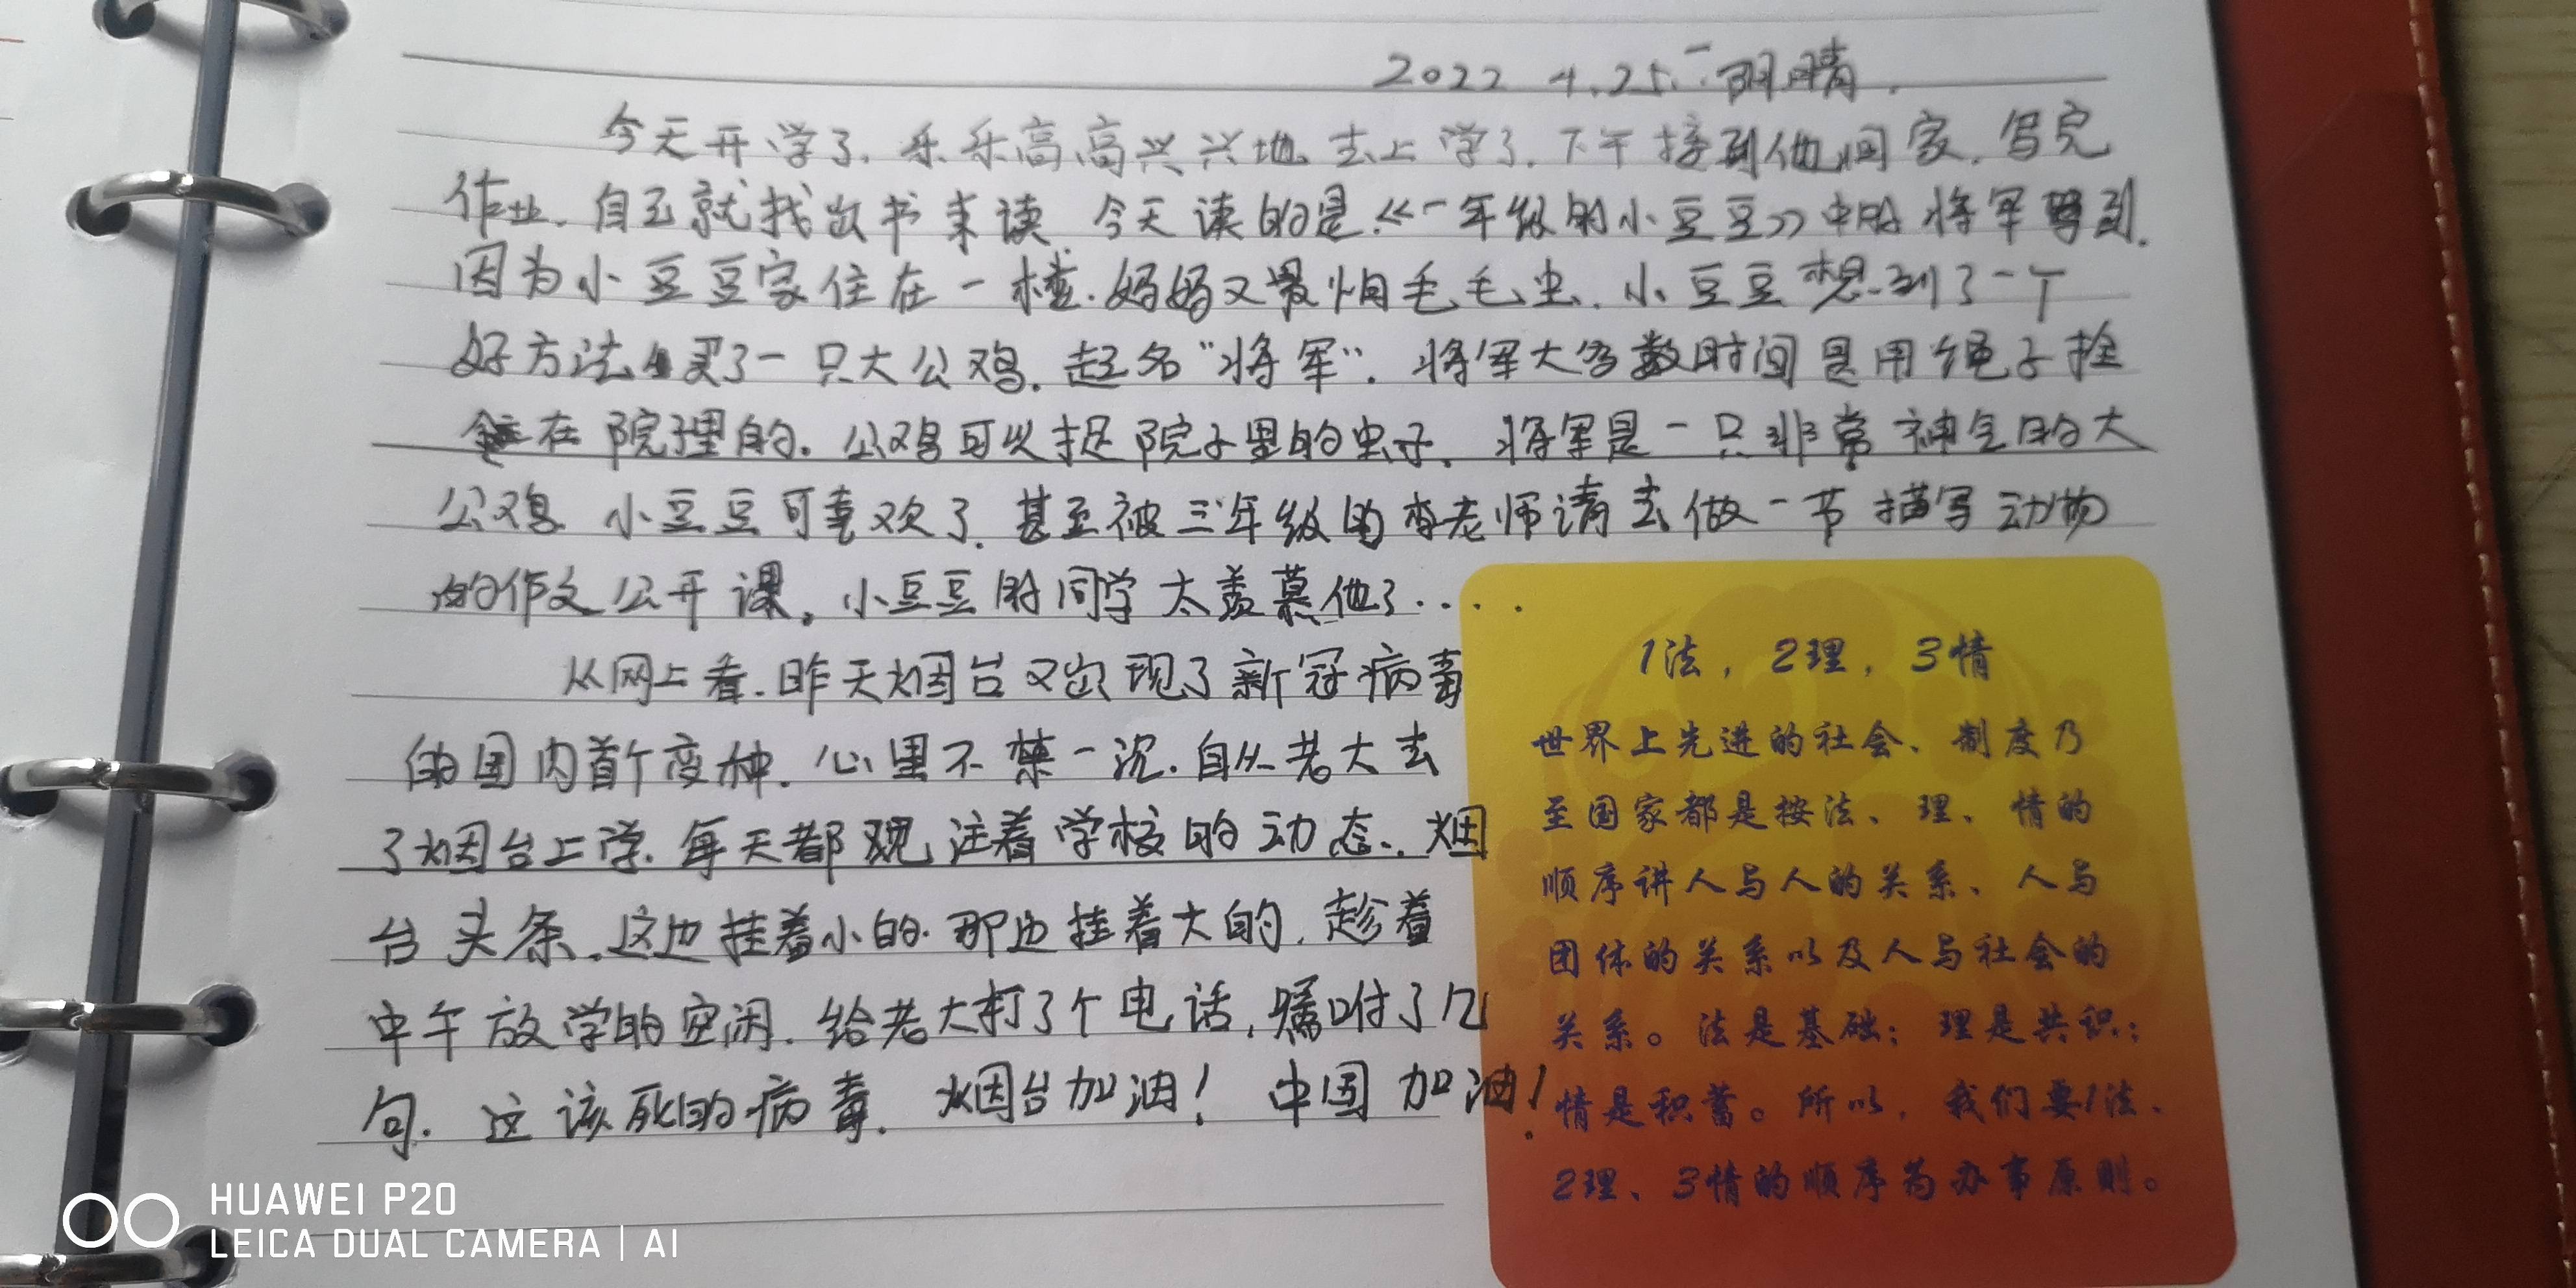 2022 4.25. 一 阴晴.
今天开学了.乐乐高高兴兴地去上学了.下午接到他回家.写完
作业.自己就找出书来读 今天读的是《一年级的小豆豆》中的将军驾到.
因为小豆豆家住在一楼.妈妈又最怕毛毛虫.小豆豆想到了一个
好方法买了一只大公鸡.起名“将军”.将军大多数时间是用绳子拴
在院子里的.公鸡可以捉院子里的虫子.将军是一只非常神气的大
公鸡 小豆豆可喜欢了.甚至被三年级的李老师请去做一节描写动物
的作文公开课。小豆豆的同学太羡慕他了....
从网上看.昨天烟台又出现了新冠病毒
的国内首个变种.心里不禁一沉.自从老大去
了烟台上学.每天都观注着学校的动态.烟
台头条.这边挂着小的.那边挂着大的.趁着
中午放学的空闲.给老大打了个电话,嘱咐了几
句.这该死的病毒.烟台加油!中国加油!
1法,2理,3情
世界上先进的社会、制度乃
至国家都是按法、理、情的
顺序讲人与人的关系、人与
团体的关系以及人与社会的
关系。法是基础;理是共识;
情是积蓄。所以,我们要1法、
2理、3情的顺序为办事原则。
HUAWEI P20
LEICA DUAL CAMERA | AI